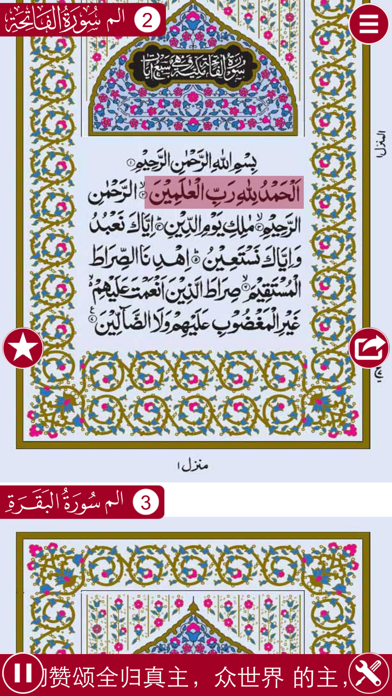 الم سُورَةُ الفَاتِحَة 2
سورة الفاتحة مكية وهي سبع ايات
المنزل ١
بِسْمِ اللهِ الرَّحْمٰنِ الرَّحِيْمِ ۝١
اَلْحَمْدُ لِلّٰهِ رَبِّ الْعٰلَمِيْنَ ۝٢ الرَّحْمٰنِ
الرَّحِيْمِ ۝٣ مٰلِكِ يَوْمِ الدِّيْنِ ۝٤ اِيَّاكَ نَعْبُدُ
وَاِيَّاكَ نَسْتَعِيْنُ ۝٥ اِهْدِنَا الصِّرَاطَ
الْمُسْتَقِيْمَ ۝٦ صِرَاطَ الَّذِيْنَ اَنْعَمْتَ عَلَيْهِمْ
غَيْرِ الْمَغْضُوْبِ عَلَيْهِمْ وَلَا الضَّآلِّيْنَ ۝٧
منزل ١
الم سُورَةُ البَقَـرَة 3
赞颂全归真主，众世界 的主，